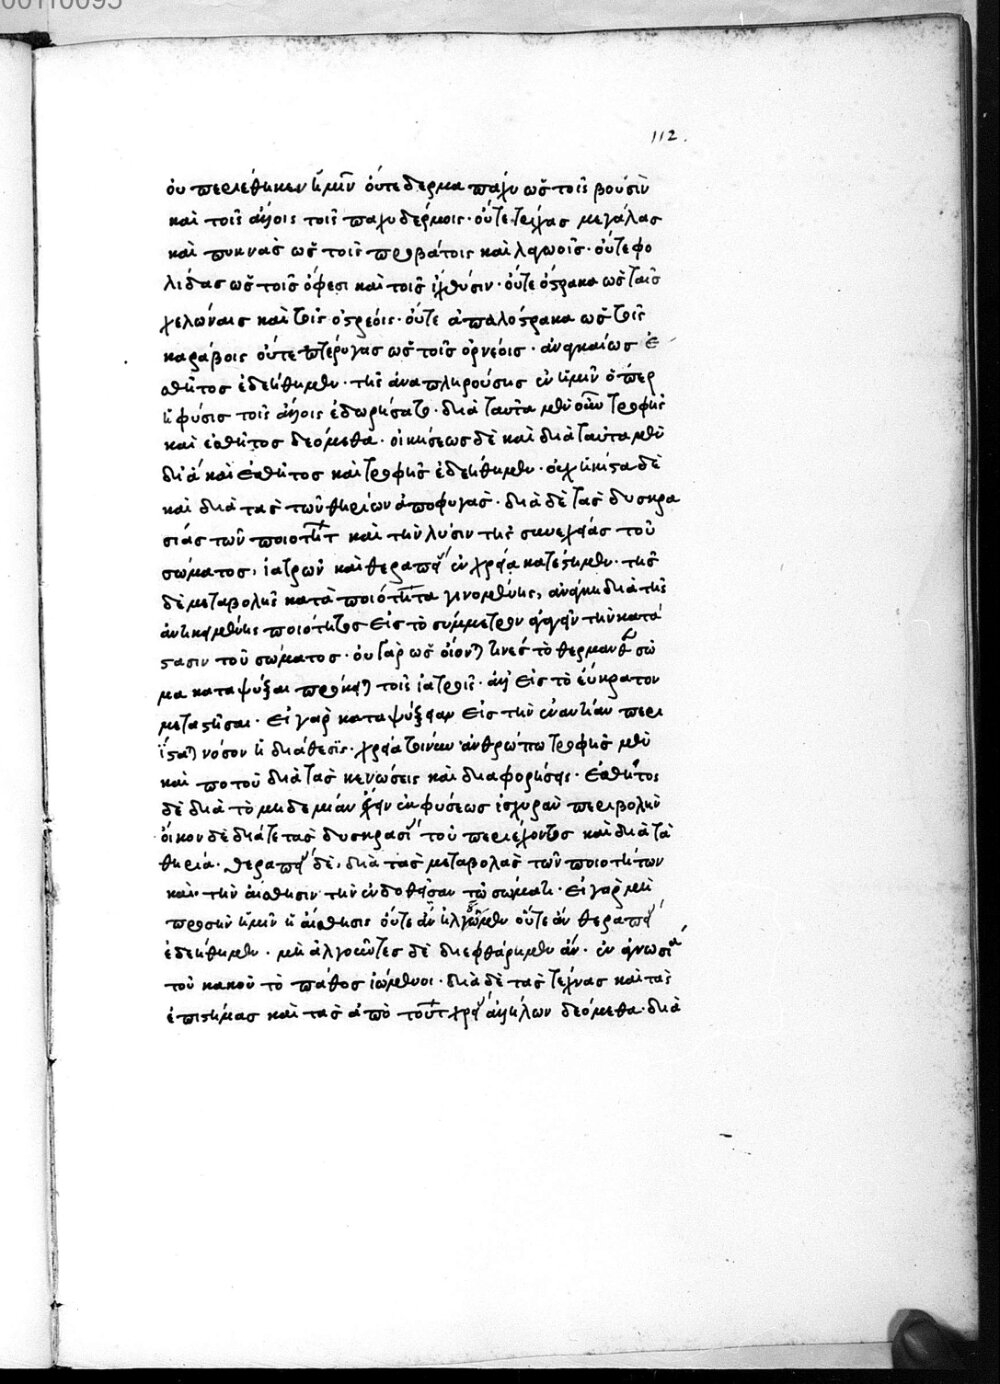 00110095
112.
οὐ περιέθηκεν ἡμῖν οὔτε δέρμα παχὺ ὡς τοῖς βουσὶν
καὶ τοῖς ἄλλοις τοῖς παχυδέρμοις· οὔτε τρίχας μεγάλας
καὶ πυκνὰς ὡς τοῖς προβάτοις καὶ λαγωοῖς· οὔτε φο
λίδας ὡς τοῖς ὄφεσι καὶ τοῖς ἰχθύσιν· οὔτε ὄστρακα ὡς ταῖς
χελώναις καὶ τοῖς ὀστρέοις· οὔτε ἁπαλόστρακα ὡς τοῖς
καράβοις οὔτε πτέρυγας ὡς τοῖς ὀρνέοις· ἀναγκαίως ἐ
σθῆτος ἐδεήθημεν· τῆς ἀναπληρούσης ἐν ἡμῖν ὅπερ
ἡ φύσις τοῖς ἄλλοις ἐδωρήσατο· διὰ ταῦτα μὲν οὖν τροφῆς
καὶ ἐσθῆτος δεόμεθα· οἰκήσεως δὲ καὶ διὰ ταῦτα μὲν
διὰ καὶ ἐσθῆτος καὶ τροφῆς ἐδεήθημεν· οὐχ ἥκιστα δὲ
καὶ διὰ τὰς τῶν θηρίων ἀποφυγάς· διὰ δὲ τὰς δυσκρα
σίας τῶν ποιοτήτ καὶ τὴν λύσιν τῆς συνεχείας τοῦ
σώματος, ἰατρῶν καὶ θεραπεί ἐν χρεία κατέστημεν· τῆς
δὲ μεταβολῆς κατὰ ποιότητα γινομένης, ἀνάγκη διὰ τῆς
ἀντικειμένης ποιότητος εἰς τὸ σύμμετρον ἀγαγεῖν τὴν κατά
στασιν τοῦ σώματος· οὐ γὰρ ὡς οἴονται τινες τὸ θερμανθὲν σῶ
μα καταψύξαι πρόκειται τοῖς ἰατροῖς· ἀλλ' εἰς τὸ εὔκρατον
μεταστῆσαι· εἰ γὰρ καταψύξειαν εἰς τὴν ἐναντίαν περι
ΐσταται νόσον ἡ διάθεσϊς· χρεία τοίνυν ἀνθρώπω τροφῆς μὲν
καὶ ποτοῦ διὰ τὰς κενώσεις καὶ διαφορήσεις· ἐσθῆτος
δὲ διὰ τὸ μηδεμίαν ἔχειν ἐκ φύσεως ἰσχυρὰν περιβολὴν
οἶκον δὲ διά τε τὰς δυσκρασί τοῦ περιέχοντος καὶ διὰ τὰ
θηρία· θεραπεί δὲ, διὰ τὰς μεταβολὰς τῶν ποιοτήτων
καὶ τὴν αἴσθησιν τὴν ἐνδοθεῖσαν τῷ σώματι· εἰ γὰρ μὴ
προσῆν ἡμῖν ἡ αἴσθησις οὔτε ἂν ἠλγοῦμεν οὔτε ἂν θεραπεί
ἐδεήθημεν· μὴ ἀλγοῦντες δὲ διεφθάρημεν ἄν· ἐν ἀγνωσία
τοῦ κακοῦ τὸ πάθος ἰώμενοι· διὰ δὲ τὰς τέχνας καὶ τὰς
ἐπιστήμας καὶ τὰς ἀπὸ τούτ χρεί ἀλλήλων δεόμεθα· διὰ